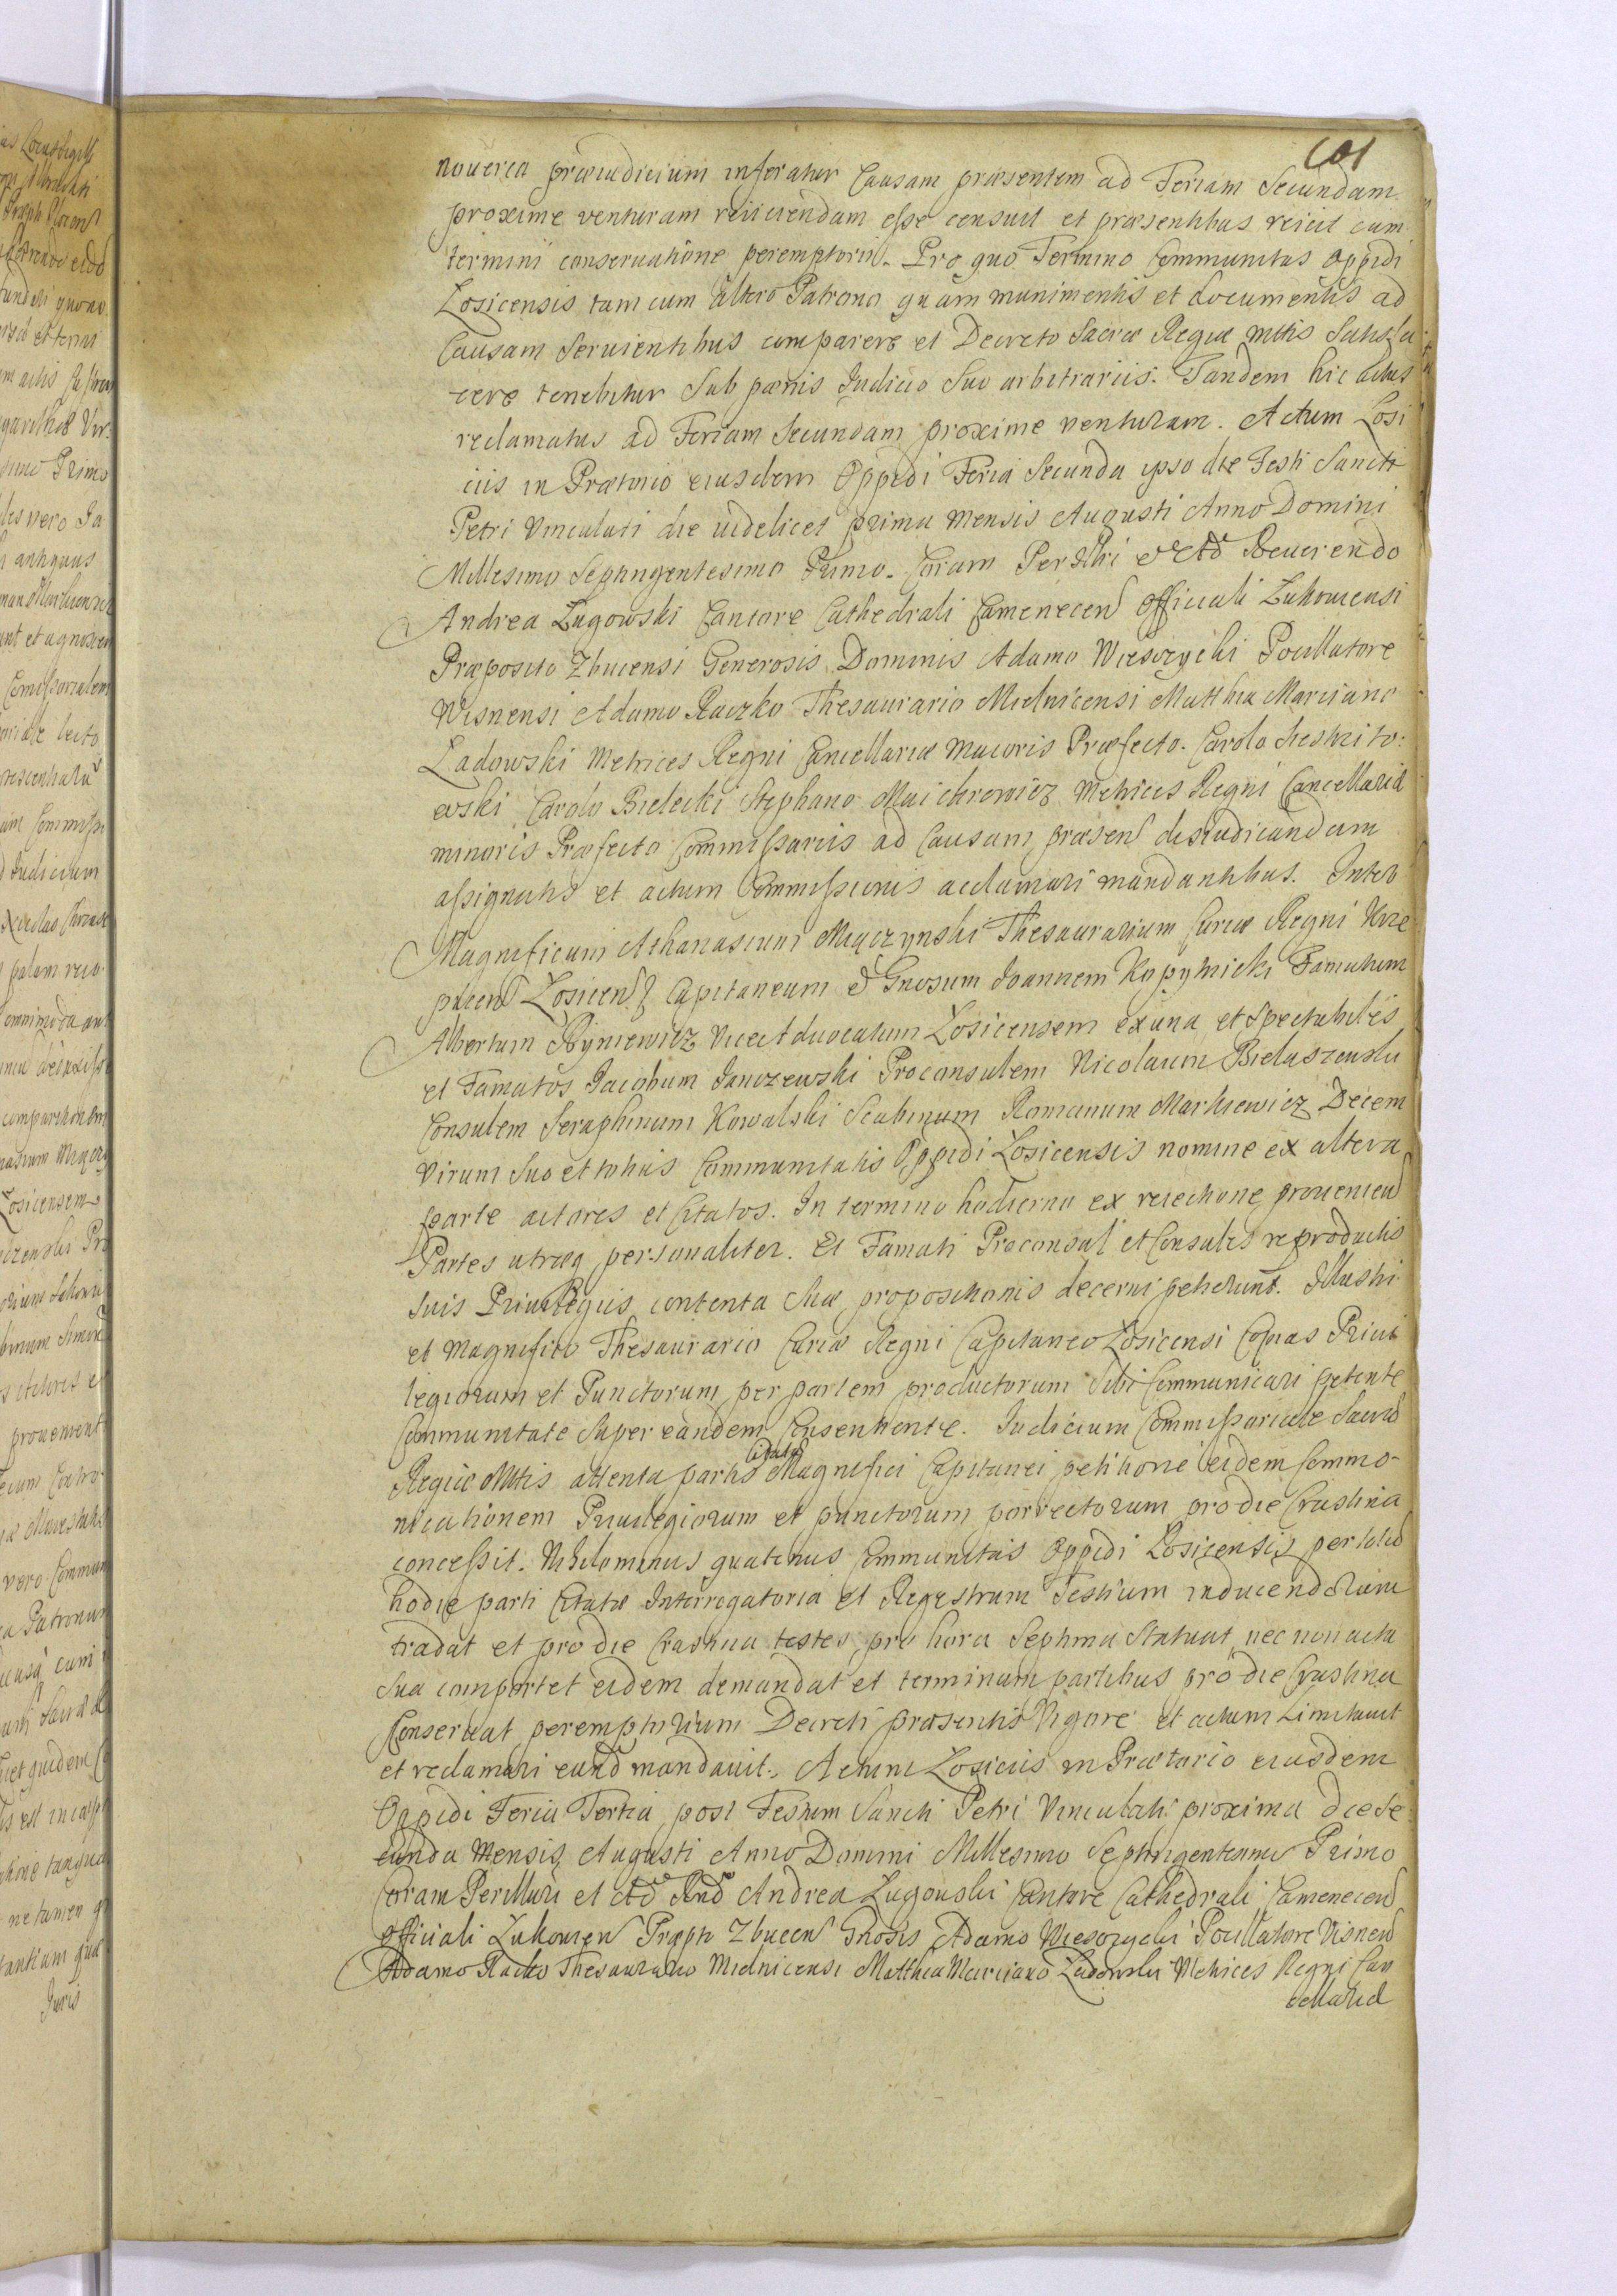 101
nouerca præiudicium inferatur Causam præsentem ad Feriam Secundam
proxime venturam reiiciendam esse censuit et præsentibus reicit cum
termini conseruatione peremptorii. Pro quo Termino Communitas Oppidi
Łosicensis tam cum altero Patrono quam munimentis et documentis ad
Causam Seruientibus comparere et Decreto Sacræ Regiæ Mttis Satisfa
cere tenebitur Sub pænis Iudicio Suo arbitrariis. Tandem hic Actus
reclamatus ad Feriam Secundam proxime venturam. Actum Łosi
ciis in Prætorio eiusdem Oppidi Feria Secunda ipso die Festi Sancti
Petri Vinculati die videlicet prima Mensis Augusti Anno Domini
Millesimo Septingentesimo Primo. Coram Perillri et Ad Reuerendo
Andrea Ługowski Cantore Cathedrali Camenecen Officiali Łukowensi
Præposito Zbucensi Generosis Dominis Adamo Wiesozycki Pocillatore
Wisnensi Adamo Raczko Thesaurario Mielnicensi Matthia Marciano
Ładowski Metrices Regni Cancellariæ Maioris Præfecto. Carolo
ewski Carolo Bielecki Stephano Maichrowicz Metrices Regni Cancellariæ
minoris Præfecto Commissariis ad Causam præsen disiudicandam
assignatis et actum Commissionis acclamari mandantibus. Inter
Magnificum Athanasium Miączynski Thesaurarium Curiæ Regni Krze
picen Łosicen & Capitaneum & Gnosum Ioannem Kopytnicki Famatum
Albertum Ryniewicz ViceAduocatum Łosicensem ex una et Spectabiles
et Famatos Iacobum Ianczewski Proconsulem Nicolaum Bielaszenslu
Consulem Seraphinum Kowalski Scabinum Romanum Markiewicz Decem
virum Suo et totius Communitatis Oppidi Łosicensis nomine ex altera
parte actores et Citatos. In termino hodierno ex reiectione prouenien
Partes utræq personaliter. Et Famati Proconsul et Consules reproductis
Suis Priuilegiis contenta Suæ propositionis decerni petierunt. Illustri
et Magnifico Thesaurario Curiæ Regni Capitaneo Łosicensi Copias Priui
legiorum et Punctorum per partem productorum Sibi Communicari petente
Communitate Super eandem Consentiente. Iudicium Commissoriale Sacræ
Regiæ Mttis attenta partis Citatæ Magnifici Capitanei petitione eidem Commo-
nicationem Priuilegiorum et punctorum porrectorum pro die Crastina
concessit. Nihilominus quatenus Communitas Oppidi Łosicensis
hodie parti Citatæ Interrogatoria et Regestrum Testium inducendorum
tradat et pro die Crastina testes, pro hora Septima Statuat nec non acta
Sua comportet eidem demandat et terminum partibus pro die Crastina
Conseruat peremptorium Decreti præsentis Vigore et actum Limitauit
et reclamari eund mandauit. Actum Łosiciis in Prætorio eiusdem
Oppidi Feria Tertia post Festum Sancti Petri Vinculati proxima die Se
cunda Mensis Augusti Anno Domini Millesimo Septingentesimo Primo
Coram Perillustri et Ad Rnd Andrea Ługowski Cantore Cathedrali Camenecen
Officiali Łukowien Præpto Zbucen Gnosis Adamo Wiesozycki Pocillatore Visnen
Adamo Racko Thesaurario Mielnicensi Matthia Marciano Ładowski Metrices Regni Can
cellariæ